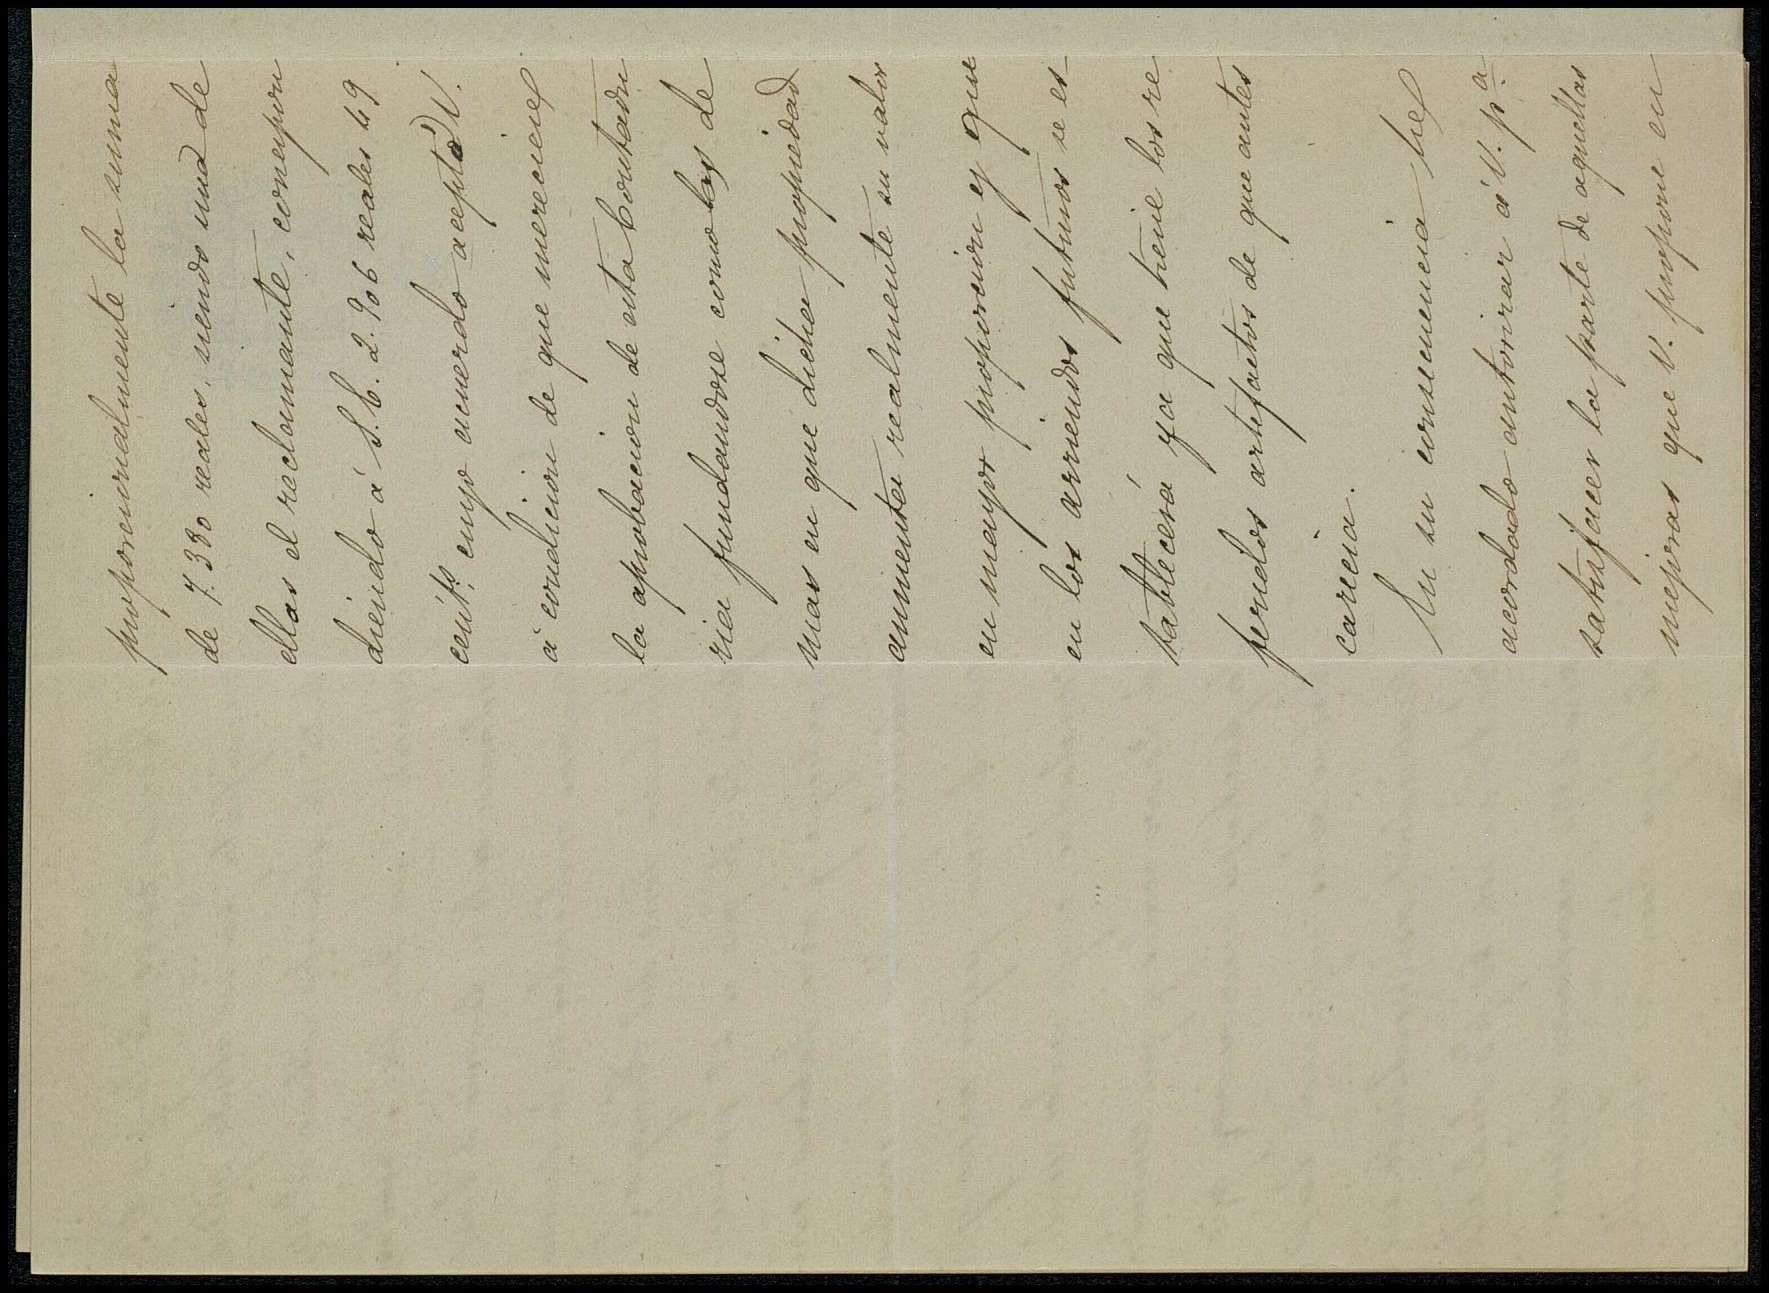 proporcionalmente la suma
de 7.380 reales, siendo una de
ellas el reclamante, correspon
diendo á S. E. 2.906 reales 49
cénts. cuyo acuerdo aceptó V.
á condicion de que mereciese
la aprobacion de esta Contadu
ria fundandose como las de
mas en que dicha propiedad
aumenta realmente su valor
en mayor proporcion y que
en los arriendos futuros se es-
tablecerá ya que tiene los re
feridos artefactos de que antes
carecia.
En su consecuencia he
acordado autorizar á V. pª
satisfacer la parte de aquellas
mejoras que V. propone en